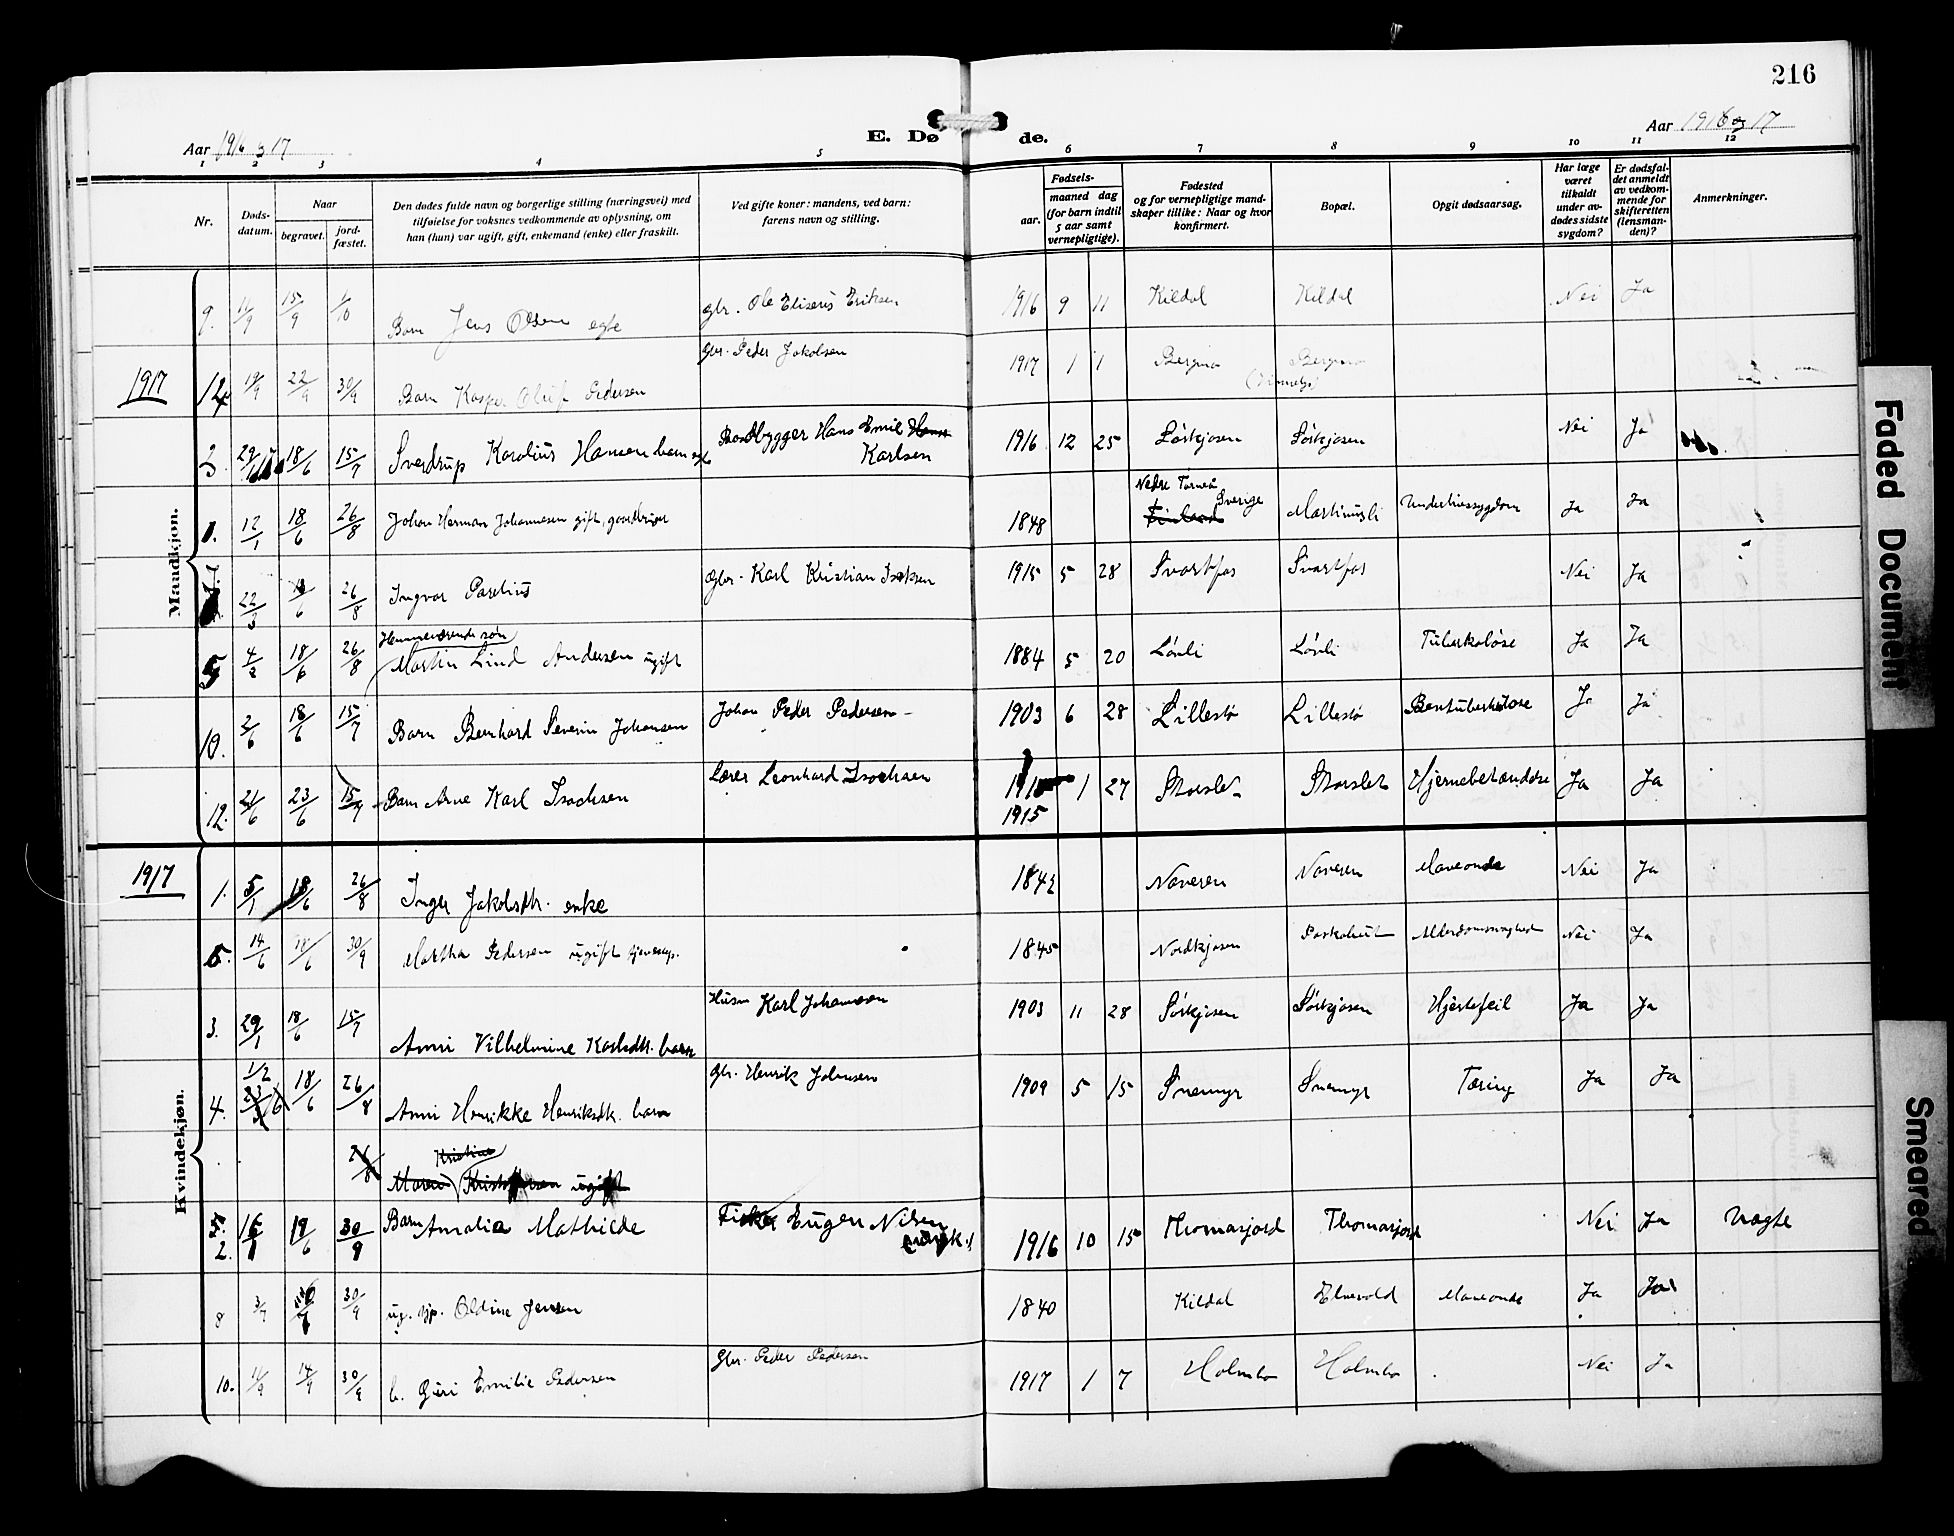 216
Aar 1916 og 17
E. Dø de.
Aar 1916 og 17
1 2 3 4 5 6 7 8 9 10 11 12
Nr.
Døds-
datum.
Naar
begravet.
jord-
fæstet.
Den dødes fulde navn og borgerlige stilling (næringsvei) med
tilføielse for voksnes vedkommende av oplysning, om
han (hun) var ugift, gift, enkemand (enke) eller fraskilt.
Ved gifte koner: mandens, ved barn:
farens navn og stilling.
Fødsels-
aar.
maaned dag
(for barn indtil
5 aar samt
vernepligtige).
Fødested
og for vernepligtige mand-
skaper tillike: Naar og hvor
konfirmert.
Bopæl.
Opgit dødsaarsag.
Har læge
været
tilkaldt
under av-
dødes sidste
sygdom?
Er dødsfal-
det anmeldt
av vedkom-
mende for
skifteretten
(lensman-
den)?
Anmerkninger.
Mandkjøn.
9. 11/9 15/9 1/10 Barn Jens Olsen egte Gbr. Ole Eliseus Eriksen 1916 9 11 Kildal Kildal Nei Ja
1917 12 19/9 22/9 30/9 Barn Kasper Oluf Pedersen Gbr. Peder Jakobsen 1917 1 1 Bergmo Bergmo
3. 18/6 15/7 Sverdrup Karolius Hansen barn Hans Emil Karlsen 1916 12 25 Sørkjosen Sørkjosen Nei Ja
1. 12/1 18/6 26/8 Johan Herman Johannesen gift, gaardbruger 1848 Nedre Torneå Sverige Finland Underlivssygdom Ja Ja
22/3 18/6 26/8 Ingvar Parelius Gbr. Karl Kristian Isaksen 1915 5 28 Svartfos Svartfos Nei Ja
5 4/2 18/6 26/8 Hjemmeværende søn Martin Lind Andersen ugift 1884 5 20 Løvli Løvli Tuberkuløse Ja Ja
10. 2/6 18/6 15/7 Barn Bernhard Severin Johansen Johan Peder Pedersen 1903 6 28 Lillestø Lillestø Bentuberkulose Ja Ja
12. 21/6 23/6 15/7 Barn Arne Karl Isachsen Lærer Leonhard Isachsen 1915 1 27 Storslet Storslet Hjernebetændelse Ja Ja
Kvindekjøn.
1917 1. 5/1 18/6 26/8 Inger Jakobsdtr. enke Naveren Naveren Maveonde Nei Ja
6. 14/6 18/6 30/9 Martha Pedersen ugift 1845 Nordkjosen Alderdomssvaghed Nei Ja
3. 29/1 18/6 15/7 Anni Vilhelmine Karlsdtr. barn Husm Karl Johansen 1903 11 28 Sørkjosen Sørkjosen Hjertefeil Ja Ja
4. 1/2 18/6 26/8 Anni Henrikke Henriksdtr. barn Gbr. Henrik Johnsen 1909 5 15 Snemyr Snemyr Tæring Ja Ja
26/8 Maren Kristine Kristoffersen ugift
2. 19/6 30/9 Barn Amalia Mathilde Fisker Eugen Nilsen 1916 10 15 Thomasjord Thomasjord Nei Ja Uægte
8 3/7 30/9 ug. Oldine Jensen 1840 Kildal Elvevold Maveonde Ja Ja
10. 11/9 14/9 30/9 b. Guri Emilie Pedersen Gbr. Peder Pedersen 1917 1 7 Holmbo Holmbo Nei Ja
Faded Document
Smeared